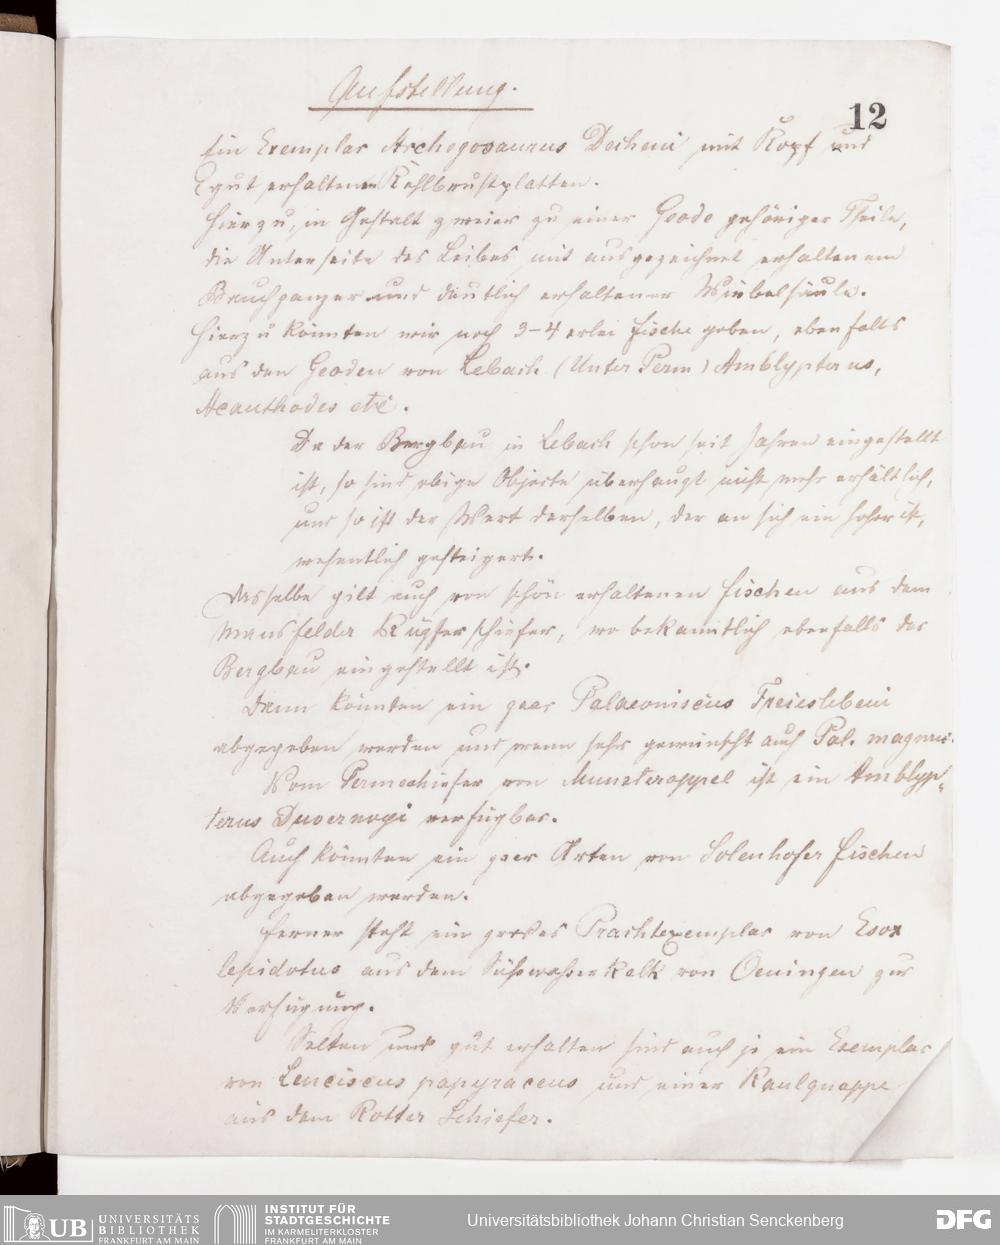 Aufstellung.
12
Ein Exemplar Archegosaurus Decheni mit Kopf und
gut erhaltenen Kehlbrustplatten.
Hierzu, in Gestalt zweier zu einer Geode gehöriger Theile,
die Unterseite des Leibes mit ausgezeichnet erhaltenem
Bauchpanzer und deutlich erhaltener Wirbelsäule.
Hierzu könnten wir noch 3-4 erlei Fische geben, ebenfalls
aus den Geoden von Lebach (Unter Perm) Amblypterus,
Acanthodes etc.
Da der Bergbau in Lebach schon seit Jahren eingestellt
ist, so sind obige Objecte überhaupt nicht mehr erhältlich,
und so ist der Wert derselben, der an sich ein hoher ist,
wesentlich gesteigert.
Dasselbe gilt auch von schön erhaltenen Fischen aus dem
Mansfelder Kupferschiefer, wo bekanntlich ebenfalls der
Bergbau eingestellt ist.
Dann könnten ein paar Palaeoniscus Freieslebeni
abgegeben werden und wenn sehr gewünscht auch Pal. magnus.
Vom Permschiefer von Munsterappel ist ein Amblyp-
terus Duvernoyi verfügbar.
Auch könnten ein paar Arten von Solenhofer Fischen
abgegeben werden.
Ferner steht ein großes Prachtexemplar von Esox
lepidotus aus dem Süßwasserkalk von Oeningen zur
Verfügung.
Selten und gut erhalten sind auch je ein Exemplar
von Leuciscus papyraceus und einer Kaulquappe
aus dem Rotter Schiefer.
UB UNIVERSITÄTS
BIBLIOTHEK
FRANKFURT AM MAIN
INSTITUT FÜR
STADTGESCHICHTE
IM KARMELITERKLOSTER
FRANKFURT AM MAIN
Universitätsbibliothek Johann Christian Senckenberg
DFG